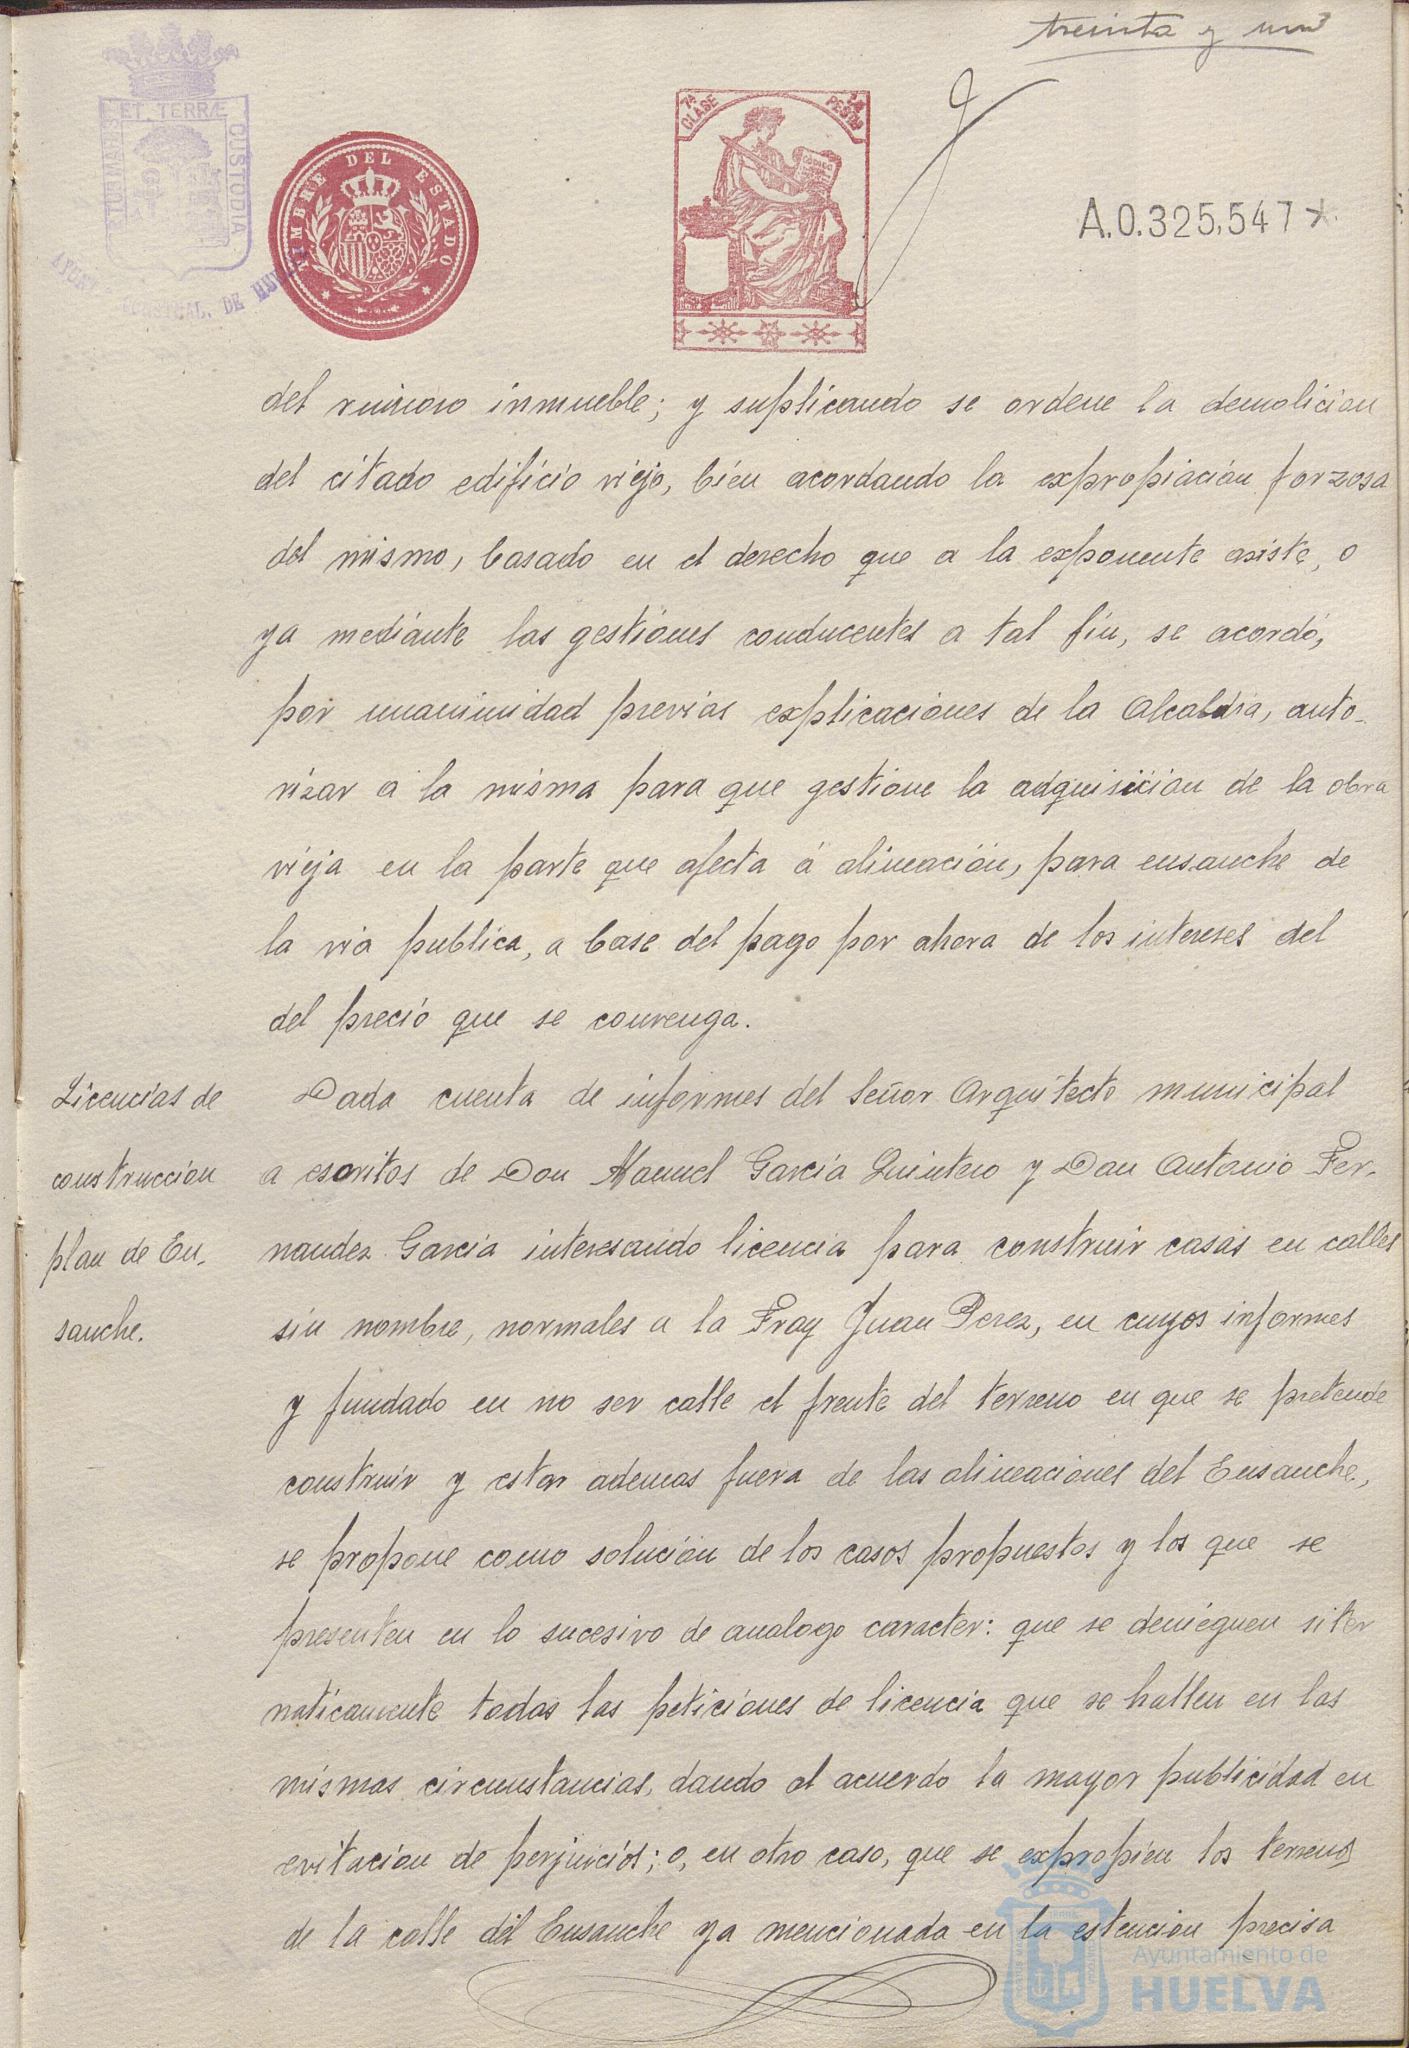 treinta y uno
ET TERRÆ
CUSTODIA
DE HUELVA
TIMBRE DEL ESTADO
7ª CLASE
PESETAS
CODIGO
A.0.325,547
del ruinoso inmueble; y suplicando se ordene la demolicion
del citado edificio viejo, bien acordando la expropiación forzosa
del mismo, basado en el derecho que a la exponente asiste, o
ya mediante las gestiones conducentes a tal fin, se acordó,
por unanimidad previas explicaciones de la Alcaldia, auto-
rizar a la misma para que gestione la adquisición de la obra
vieja en la parte que afecta á alineación, para ensanche de
la via publica, a base del pago por ahora de los intereses del
del precio que se convenga.
Licencias de
construccion
plan de En-
sanche.
Dada cuenta de informes del Señor Arquitecto municipal
a escritos de Don Manuel Garcia Quintero y Don Antonio Fer-
nandez Garcia interesando licencia para construir casas en calles
sin nombre, normales a la Fray Juan Perez, en cuyos informes
y fundado en no ser calle el frente del terreno en que se pretende
construir y estar ademas fuera de las alineaciones del Ensanche,
se propone como solución de los casos propuestos y los que se
presenten en lo sucesivo de analogo caracter: que se denieguen siter
naticamente todas las peticiones de licencia que se hallen en las
mismas circunstancias, dando al acuerdo la mayor publicidad en
evitacion de perjuicios; o, en otro caso, que se expropien los terrenos
de la calle del Ensanche ya mencionada en la estencion precisa
Ayuntamiento de
HUELVA